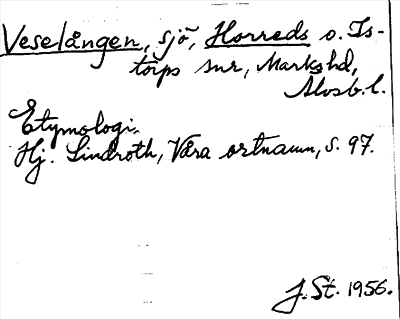 Veselången, sjö, Horreds o. Is-
torps snr, Markshd,
Älvsb. l.
Etymologi.
Hj. Lindroth, Våra ortnamn, s. 97.
J. St. 1956.